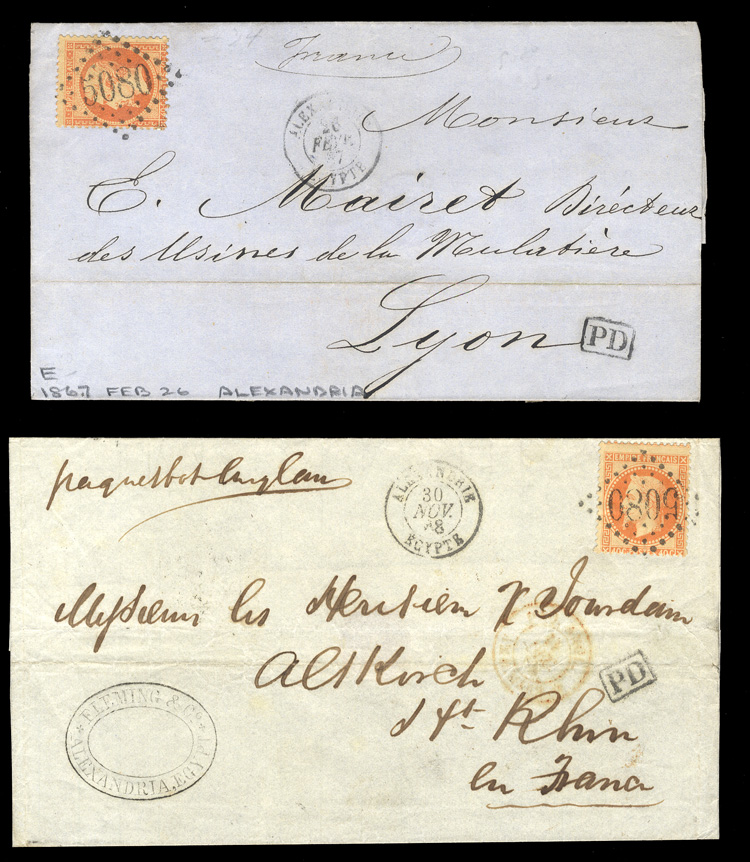 5080
France
ALEXANDRIE
26
FEVR.
67
EGYPTE
Monsieur
E. Mairet Directeur
des Usines de la Mulatière
Lyon
PD
E
1867 FEB 26 ALEXANDRIA
paquebot anglais
ALEXANDRIE
30
NOV.
68
EGYPTE
EMPIRE FRANÇAIS
5080
Messieurs les Heritiers X Jourdain
Altkirch
PD
Ht Rhin
en France
FLEMING & Co
ALEXANDRIA, EGYPT